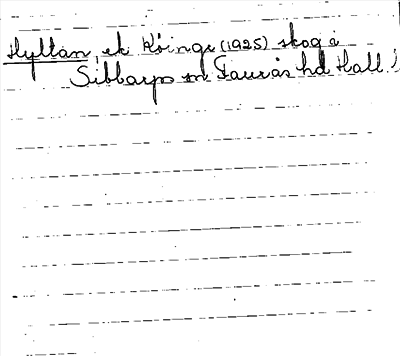 Hyltan, ek Köinge (1925) skog i
Sibbarps sn Faurås hd Hall.